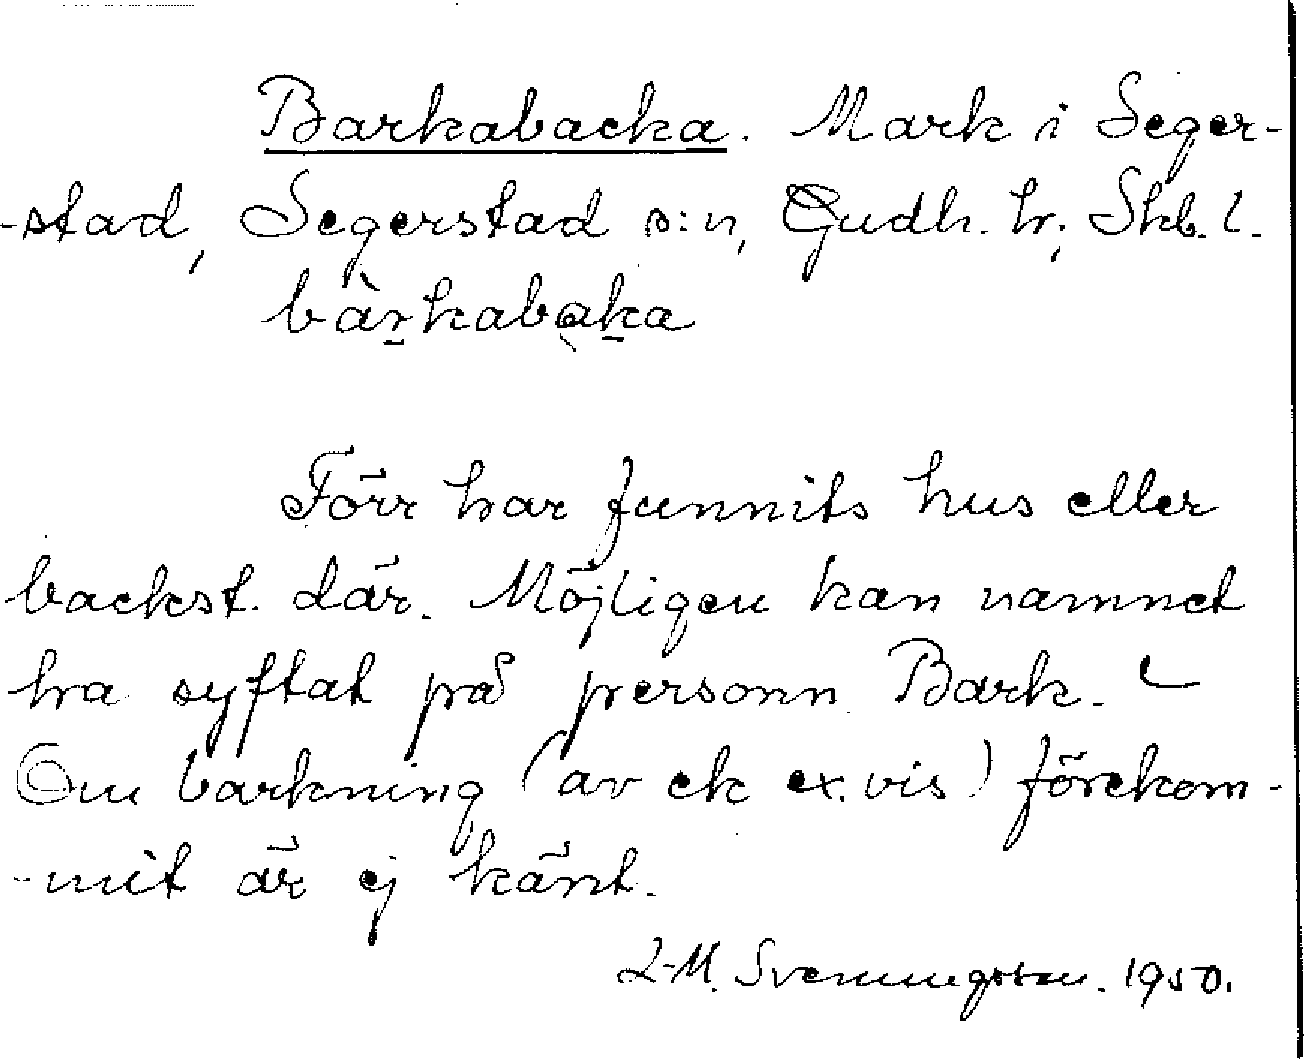 Barkabacka. Mark i Seger-
-stad, Segerstad s:n, Gudh. hr; Skb. l.
bàr̠kabak̠a
Förr har funnits hus eller
backst. där. Möjligen kan namnet
ha syftat på personn. Bark. –
Om barkning (av ek ex.vis) förekom-
-mit är ej känt.
L-M. Svenungsson. 1950.